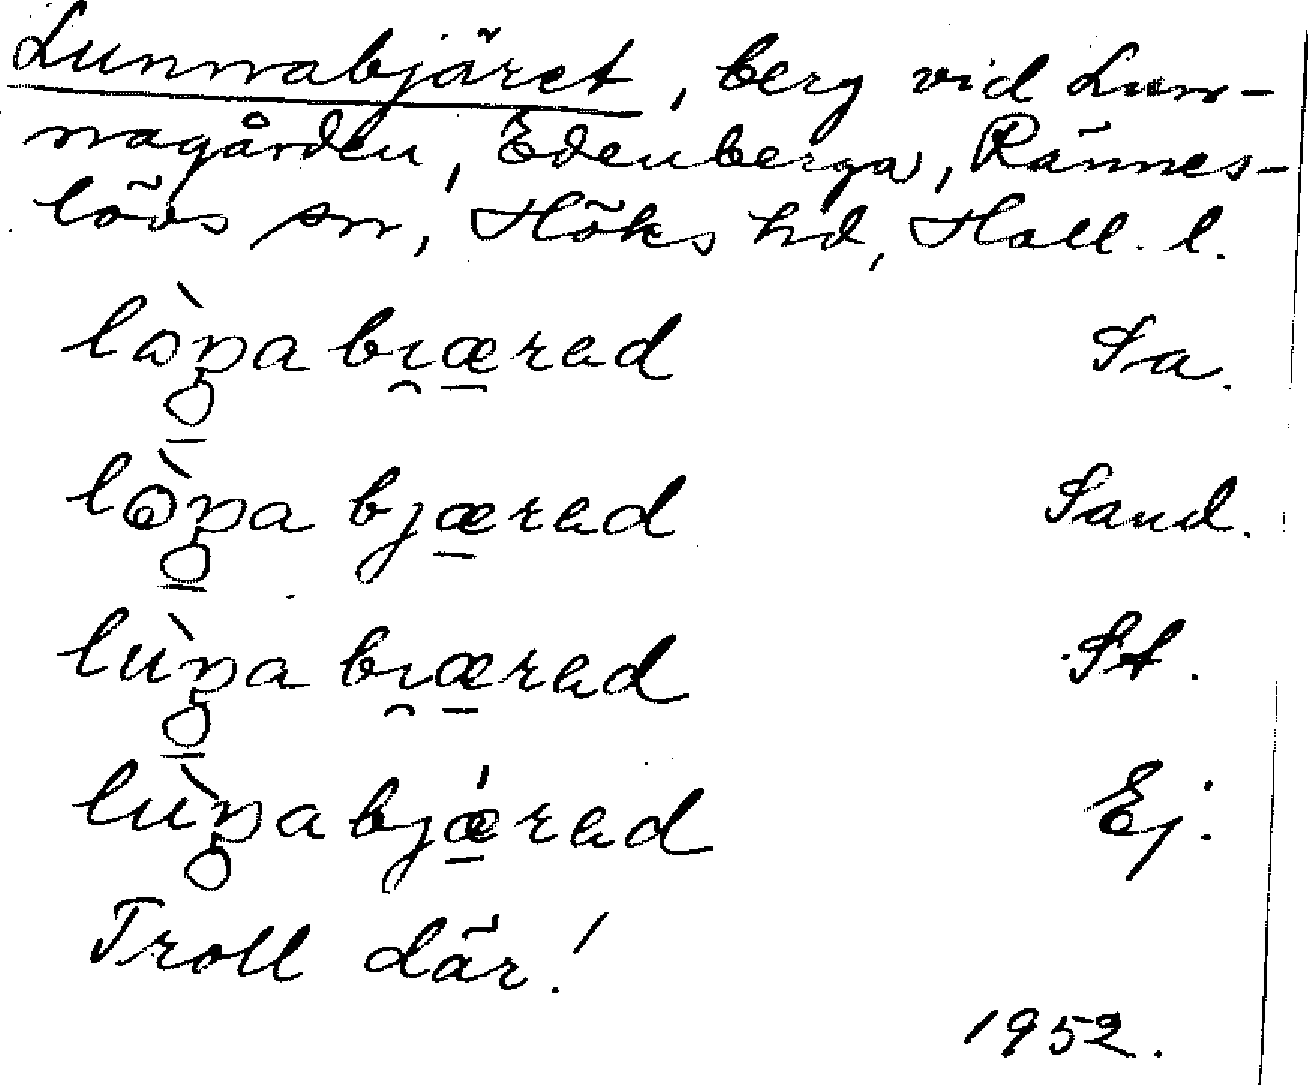 Lunnabjäret, berg vid Lun-
nagården, Edenberga, Rännes-
lövs sn, Höks hd, Hall. l.
lɔ̀n̥a bi̯æ̠rad Sa.
lò̠n̥a bjæ̠rad Sand.
lùn̥a bi̯æ̠rad St.
lùn̥abjǽ̠rad Ej.
Troll där!
1952.